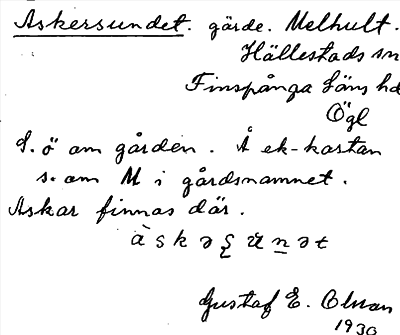 Askersundet. gärde. Melhult.
Hällestads sn
Finspånga läns hd
Ögl
S. ö am gården. Å ek-kartan
s. om M i gårdsnamnet.
Askar finnas där.
Gustaf E. Olsson
1930